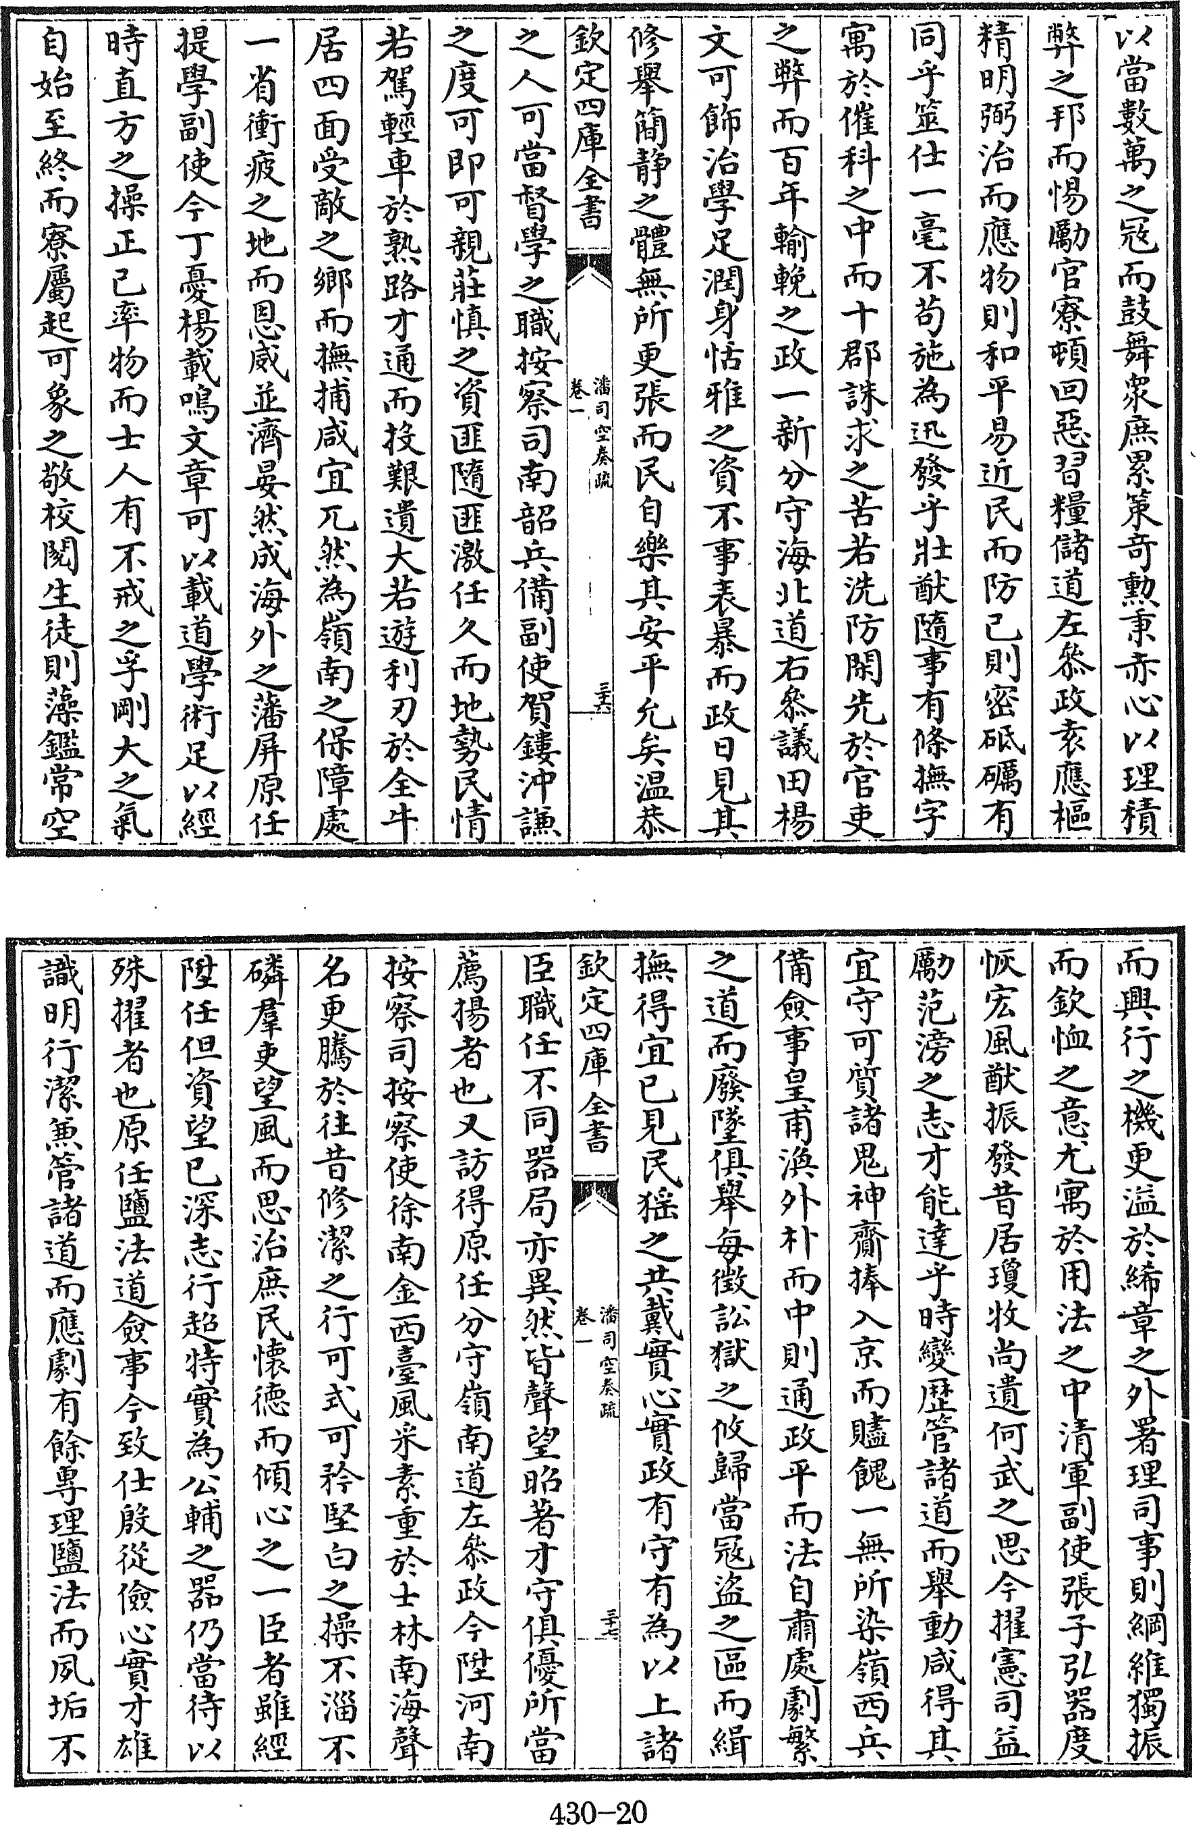 以當數萬之冦而鼓舞衆庶累策奇勲秉赤心以理積
弊之邦而惕勵官寮頓回惡習糧儲道左叅政袁應樞
精明弼治而應物則和平易近民而防己則密砥礪有
同乎筮仕一毫不苟施為迅發乎壯猷隨事有條撫字
寓於催科之中而十郡誅求之苦若洗防閑先於官吏
之弊而百年輸輓之政一新分守海北道右叅議田楊
文可飾治學足潤身恬雅之資不事表暴而政日見其
修舉簡静之體無所更張而民自樂其安平允矣温恭
欽定四庫全書
潘司空奏疏
卷一
三六
之人可當督學之職按察司南韶兵備副使賀鏤沖謙
之度可即可親莊慎之資匪隨匪激任久而地勢民情
若駕輕車於熟路才通而投艱遺大若遊利刃於全牛
居四面受敵之鄉而撫捕咸宜兀然為嶺南之保障處
一省衝疲之地而恩威並濟晏然成海外之藩屏原任
提學副使今丁憂楊載鳴文章可以載道學術足以經
時直方之操正己率物而士人有不戒之孚剛大之氣
自始至終而寮屬起可象之敬校閱生徒則藻鑑常空
而興行之機更溢於絺章之外署理司事則綱維獨振
而欽恤之意尤寓於用法之中清軍副使張子弘器度
恢宏風猷振發昔居瓊牧尚遺何武之思今擢憲司益
勵范滂之志才能達乎時變歴管諸道而舉動咸得其
宜守可質諸鬼神齎捧入京而贐餽一無所染嶺西兵
備僉事皇甫渙外朴而中則通政平而法自肅處劇繁
之道而廢墜俱舉每徴訟獄之攸歸當冦盜之區而緝
撫得宜已見民猺之共戴實心實政有守有為以上諸
欽定四庫全書
潘司空奏疏
卷一
三七
臣職任不同器局亦異然皆聲望昭著才守俱優所當
薦揚者也又訪得原任分守嶺南道左叅政今陞河南
按察司按察使徐南金西臺風采素重於士林南海聲
名更騰於往昔修潔之行可式可矜堅白之操不淄不
磷羣吏望風而思治庶民懐徳而傾心之一臣者雖經
陞任但資望已深志行超特實為公輔之器仍當待以
殊擢者也原任鹽法道僉事今致仕殷從儉心實才雄
識明行潔兼管諸道而應劇有餘専理鹽法而夙垢不
430-20